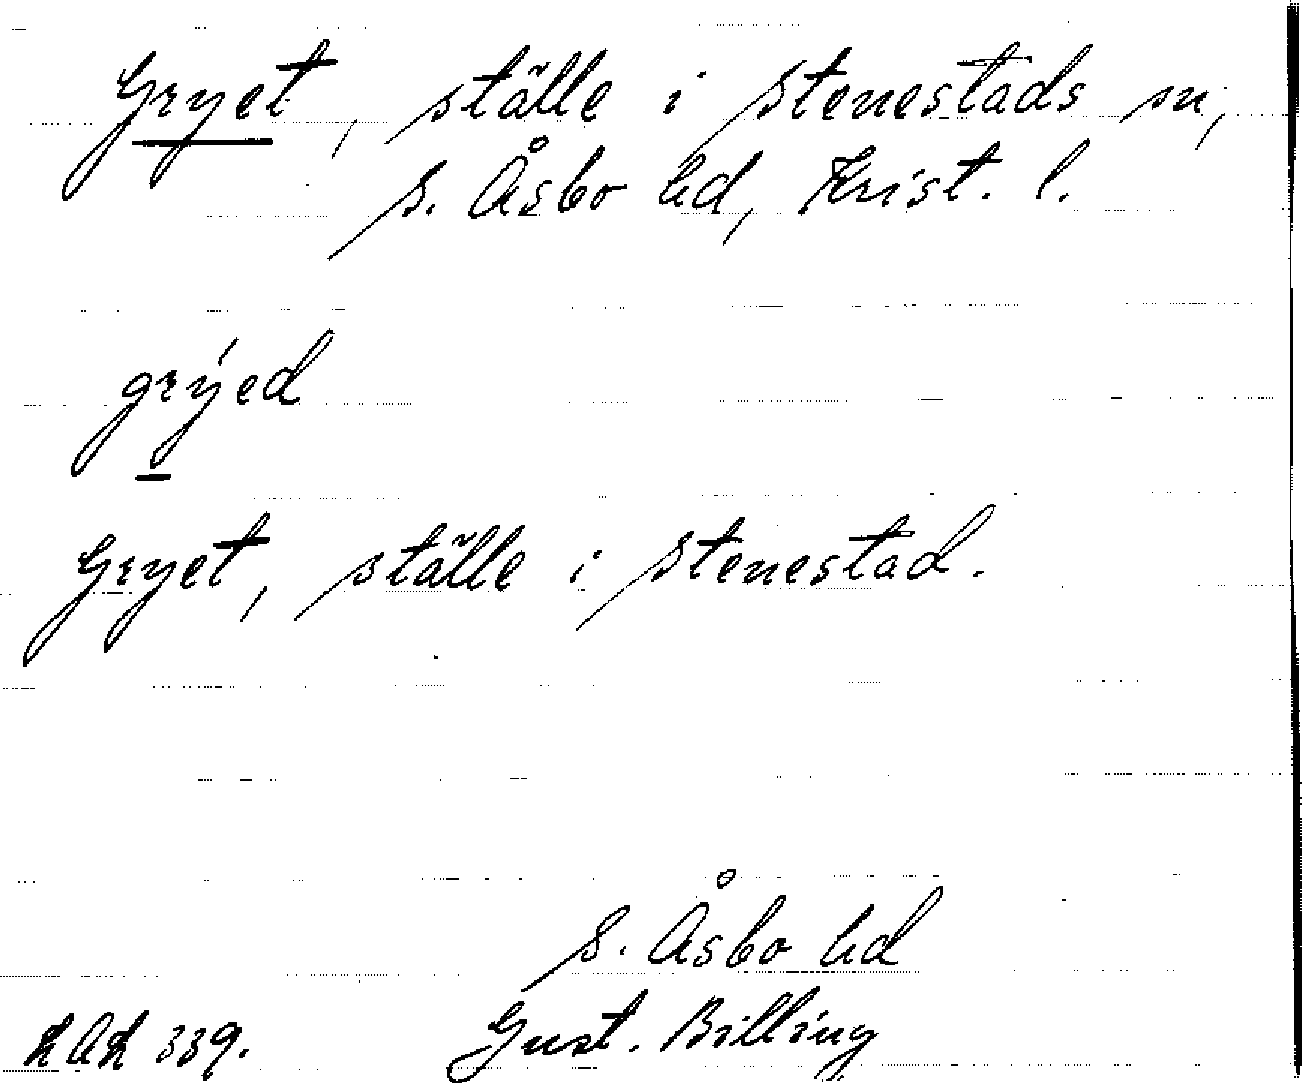 Gryet, ställe i Stenestads sn,
S. Åsbo hd, Krist. l.
grýed
Gryet, ställe i Stenestad.
S. Åsbo hd
LAL 339. Gust. Billing